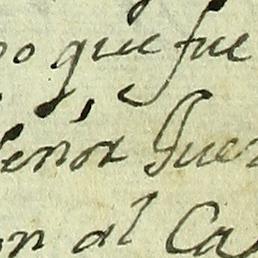 po que fue
señor Guer
on al Ca